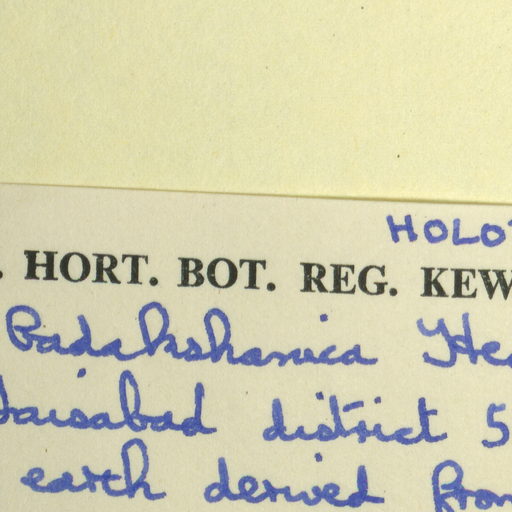 HOLO
. HORT. BOT. REG. KEW
Badakshanica
faisabad district 5
earth derived from